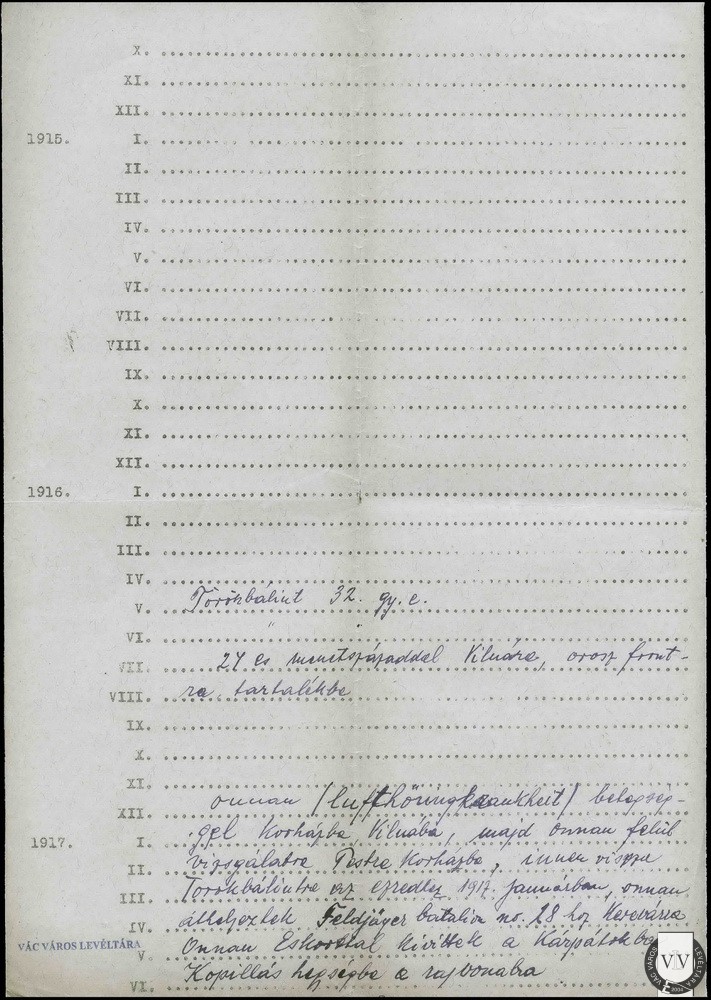 X.
XI.
XII.
1915. I.
II.
III.
IV.
V.
VI.
VII.
VIII.
IX.
X.
XI.
XII.
1916. I.
II.
III.
IV.
V. Törökbálint 32. gy. e.
VI. "
VII. 24 es menetszázaddal Vilnára, orosz front-
VIII. ra tartalékba
IX.
X.
XI.
onnan (luftköringkrankheit) betegség-
XII.
1917. I. gel Korházba Vilnába, majd onnan felül
II. vizsgálatra Pestre Korházba, innen vissza
III. Törökbálintra az ezredhez 1917. januárban, onnan
IV. áthelyeztek Feldjäger batalion no. 28 hoz Kevevárra
V. Onnan Eskorttal kivittek a Kárpátokba
VI. Kopillás hegységbe a rajvonalra
VÁC VÁROS LEVÉLTÁRA
VÁC VÁROS LEVÉLTÁRA
VLV
2004